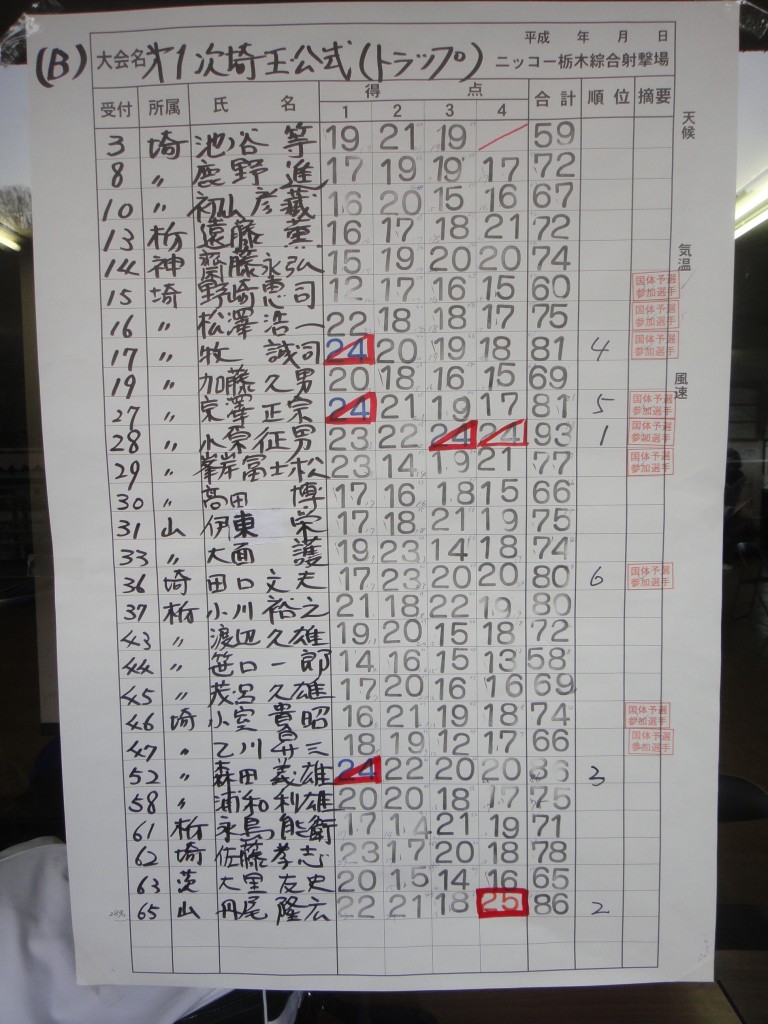 平成 年 月 日
(B) 大会名 オ1次埼玉公式(トラップ) ニッコー栃木綜合射撃場
受付 所属 氏 名 得 点 合計 順位 摘要
1 2 3 4
天候
気温
風速
3 埼 池谷 等 19 21 19 59
8 〃 鹿野 進 17 19 19 17 72
10 〃 初山 彦蔵 16 20 15 16 67
13 栃 遠藤 16 17 18 21 72
14 神 齋藤 永弘 15 19 20 20 74
15 埼 野崎 恵司 12 17 16 15 60 国体予選参加選手
16 〃 松澤 浩一 22 18 18 17 75 国体予選参加選手
17 〃 牧 誠司 24 20 19 18 81 4 国体予選参加選手
19 〃 加藤 久男 20 18 16 15 69
27 〃 京澤 正宗 24 21 19 17 81 5 国体予選参加選手
28 〃 小原 征男 23 22 24 24 93 1 国体予選参加選手
29 〃 峯岸 冨士松 23 14 19 21 77 国体予選参加選手
30 〃 高田 博 17 16 18 15 66
31 山 伊東 栄 17 18 21 19 75
33 〃 大面 護 19 23 14 18 74
36 埼 田口 文夫 17 23 20 20 80 6 国体予選参加選手
37 栃 小川 裕之 21 18 22 19 80
43 〃 渡辺 久雄 19 20 15 18 72
44 〃 笹口 一郎 14 16 15 13 58
45 〃 茂呂 久雄 17 20 16 16 69
46 埼 小室 貴昭 16 21 19 18 74 国体予選参加選手
47 〃 乙川 三 18 19 12 17 66 国体予選参加選手
52 〃 森田 義雄 24 22 20 20 86 3
58 〃 浦和 利雄 20 20 18 17 75
61 栃 永島 能衛 17 14 21 19 71
62 埼 佐藤 孝志 23 17 20 18 78
63 茨 大里 友史 20 15 14 16 65
65 山 丹尾 隆広 22 21 18 25 86 2